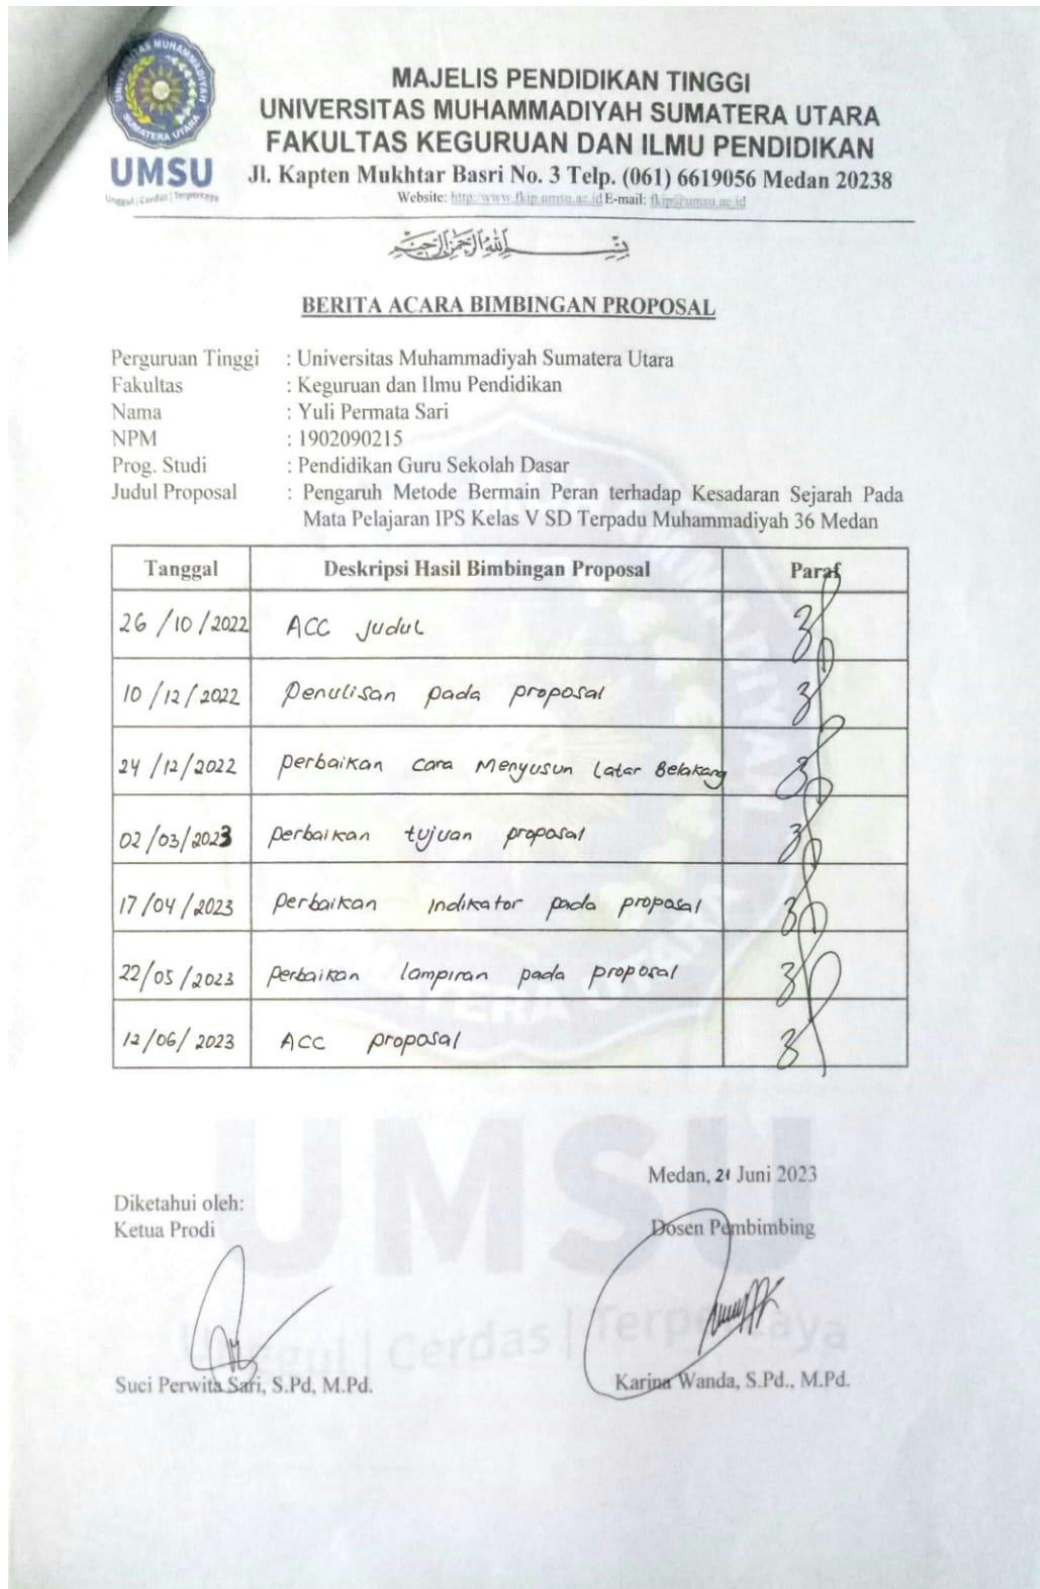 MAJELIS PENDIDIKAN TINGGI
UNIVERSITAS MUHAMMADIYAH SUMATERA UTARA
FAKULTAS KEGURUAN DAN ILMU PENDIDIKAN
Jl. Kapten Mukhtar Basri No. 3 Telp. (061) 6619056 Medan 20238
Website: http://www.fkip.umsu.ac.id E-mail: fkip@umsu.ac.id
UNIVERSITAS MUHAMMADIYAH
SUMATERA UTARA
UMSU
Unggul | Cerdas | Terpercaya
بسم الله الرحمن الرحيم
BERITA ACARA BIMBINGAN PROPOSAL
Perguruan Tinggi : Universitas Muhammadiyah Sumatera Utara
Fakultas : Keguruan dan Ilmu Pendidikan
Nama : Yuli Permata Sari
NPM : 1902090215
Prog. Studi : Pendidikan Guru Sekolah Dasar
Judul Proposal : Pengaruh Metode Bermain Peran terhadap Kesadaran Sejarah Pada
Mata Pelajaran IPS Kelas V SD Terpadu Muhammadiyah 36 Medan
Tanggal Deskripsi Hasil Bimbingan Proposal Paraf
26/10/2022 ACC Judul
10/12/2022 Penulisan pada proposal
24/12/2022 perbaikan cara Menyusun Latar Belakang
02/03/2023 perbaikan tujuan proposal
17/04/2023 perbaikan Indikator pada proposal
22/05/2023 perbaikan lampiran pada proposal
12/06/2023 ACC proposal
Medan, 21 Juni 2023
Diketahui oleh:
Ketua Prodi Dosen Pembimbing
UMSU
Unggul | Cerdas | Terpercaya
Suci Perwita Sari, S.Pd, M.Pd. Karina Wanda, S.Pd., M.Pd.